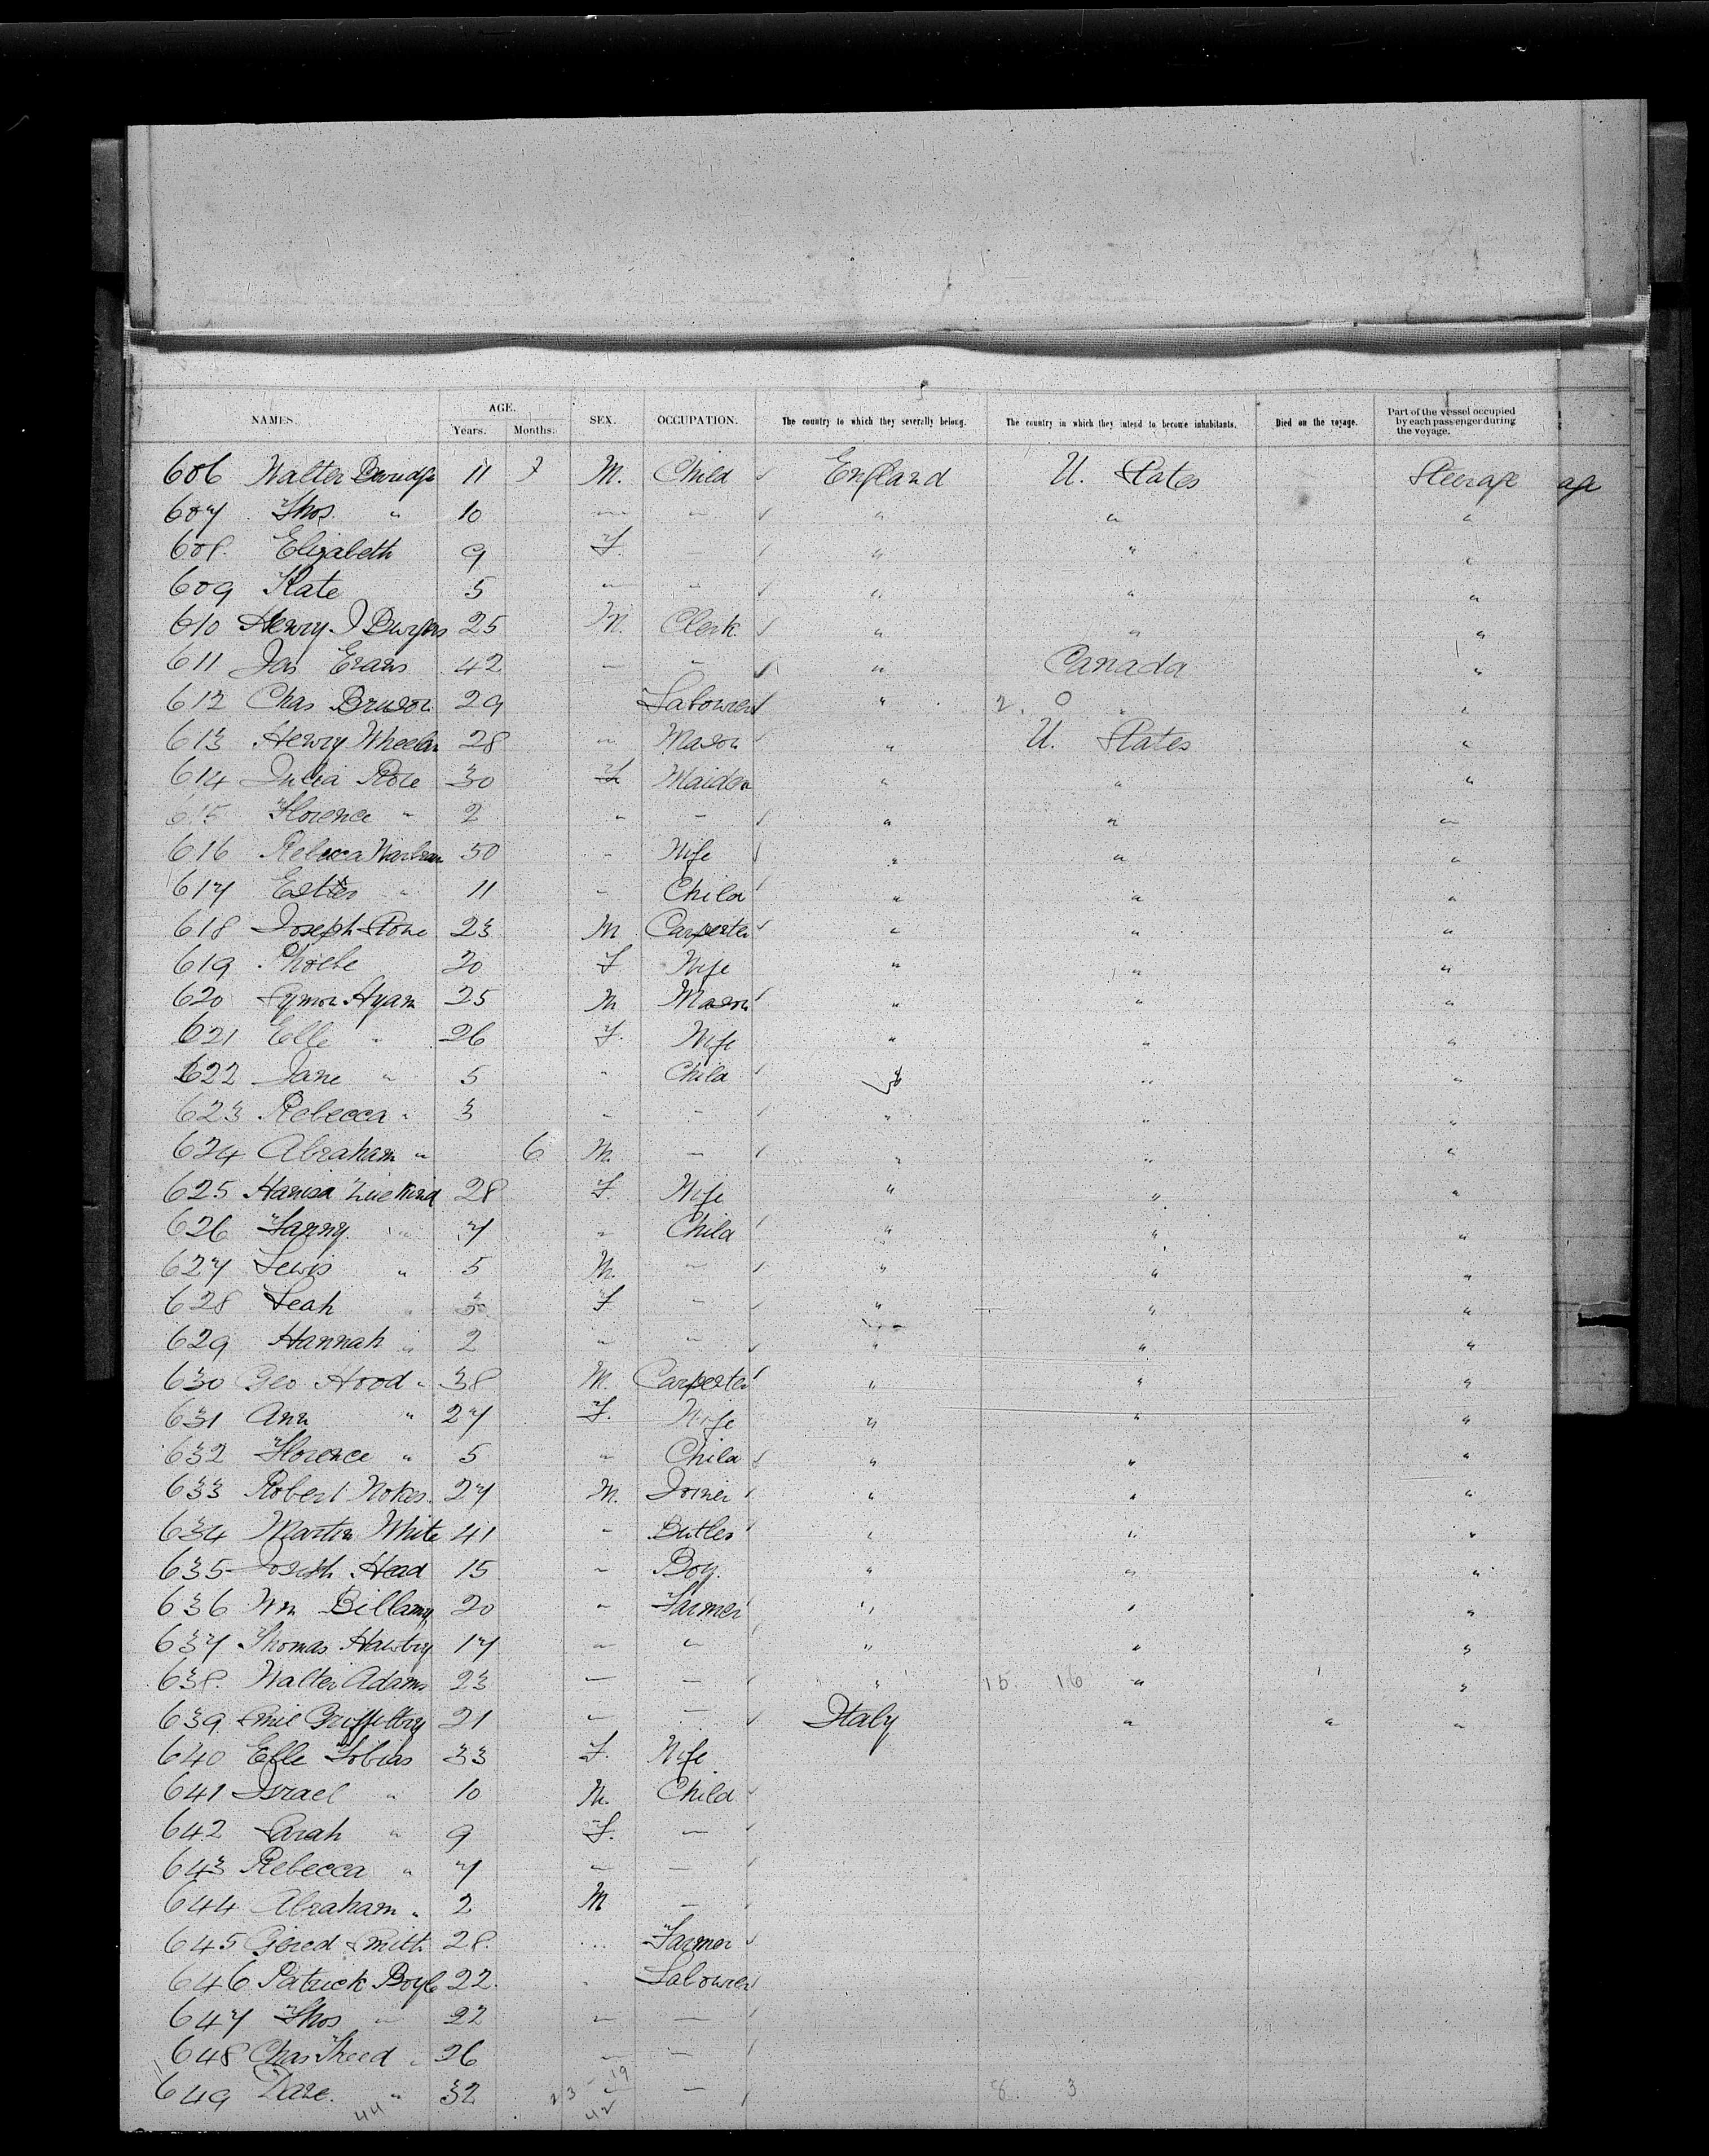 NAMES. AGE. Years. Months. SEX. OCCUPATION. The country to which they severally belong. The country in which they intend to become inhabitants. Died on the voyage. Part of the vessel occupied by each passenger during the voyage.
606 Walter 11 M. Child England U. States Steerage age
607 Thos. " 10 — — " " "
608 Elizabeth 9 F. — " " "
609 Kate 5 — — " " "
610 Henry J 25 M. Clerk " " "
611 Jas Evans 42 — " " Canada "
612 Chas 29 Labourer " 2. 0 " "
613 Henry Wheelan 28 " Mason " U. States "
614 Julia 30 F Maiden " " "
615 Florence " 2 " — " " "
616 Rebecca 50 " Wife " " "
617 Esther " 11 " Child " " "
618 Joseph Stone 23 M Carpenter " " "
619 Phoebe 20 F Wife " " "
620 Symon Hyam 25 M Mason " " "
621 Elle " 26 F. Wife " " "
622 Jane " 5 " Child " " "
623 Rebecca " 3 " " " " "
624 Abraham " 6 M. — " " "
625 28 F. Wife " " "
626 Fanny " 7 " Child " " "
627 Lewis " 5 M. — " " "
628 Leah " F — " " "
629 Hannah " 2 " " " " "
630 Geo Hood " 38 M. Carpenter " " "
631 Ann " 27 F. Wife " " "
632 Florence " 5 " Child " " "
633 Robert Nokes 27 M. Joiner " " "
634 Martin White 41 " Butler " " "
635 Joseph Head 15 " Boy. " " "
636 Wm Billamy 20 " Farmer " " "
637 Thomas 17 " " " " "
638 Walter Adams 23 — — " 15. 16 " "
639 21 — — Italy " " "
640 Elle Tobias 33 F. Wife
641 Israel " 10 M. Child
642 Sarah " 9 F. —
643 Rebecca " 7 — —
644 Abraham " 2 M —
645 Smith 28 Farmer
646 Patrick Boyle 22 " Labourer
647 Thos " 22 — —
648 Chas 26 — —
649 " 32 — — 8. 3
44 23 - 19
42